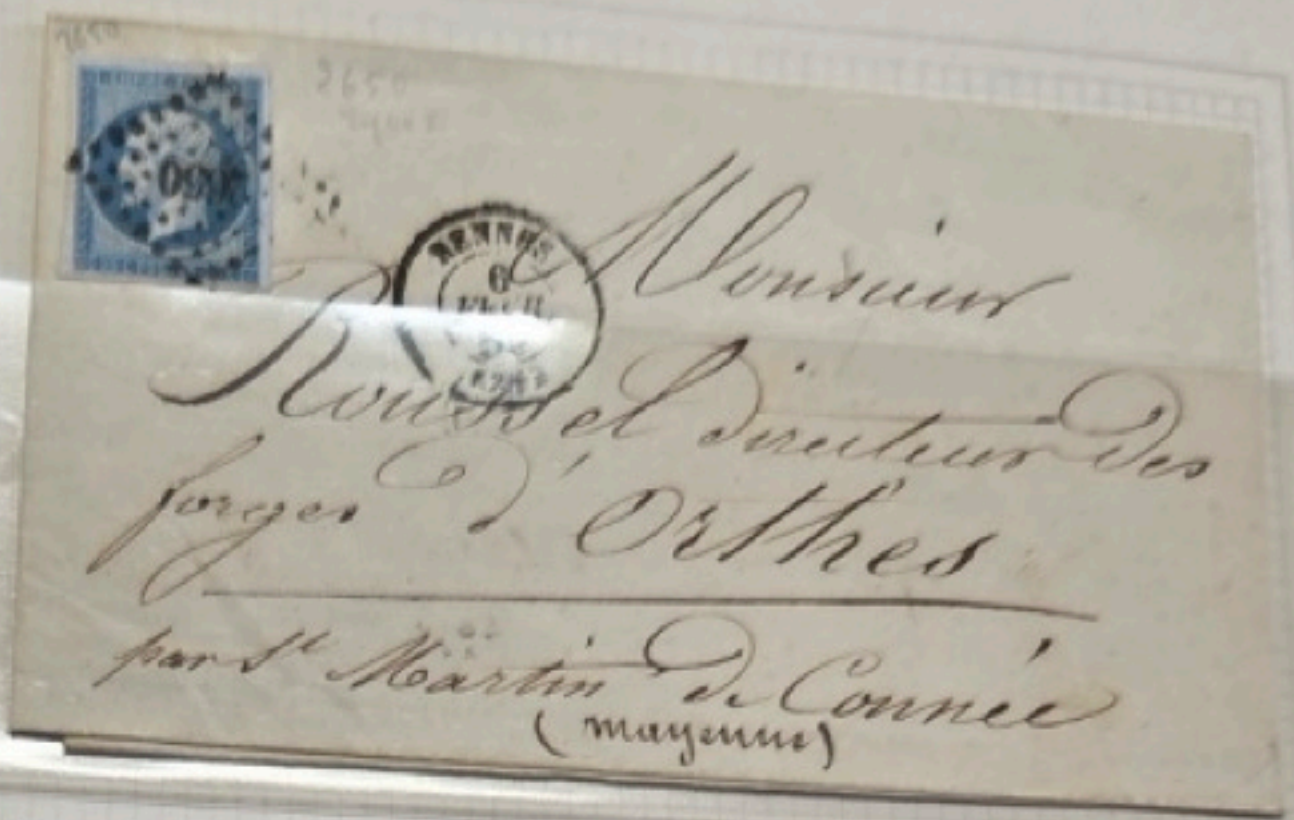 2650
RENNES
6
Monsieur
Roussel Directeur des
forges d'Orthes
par St Martin de Connée
(mayenne)